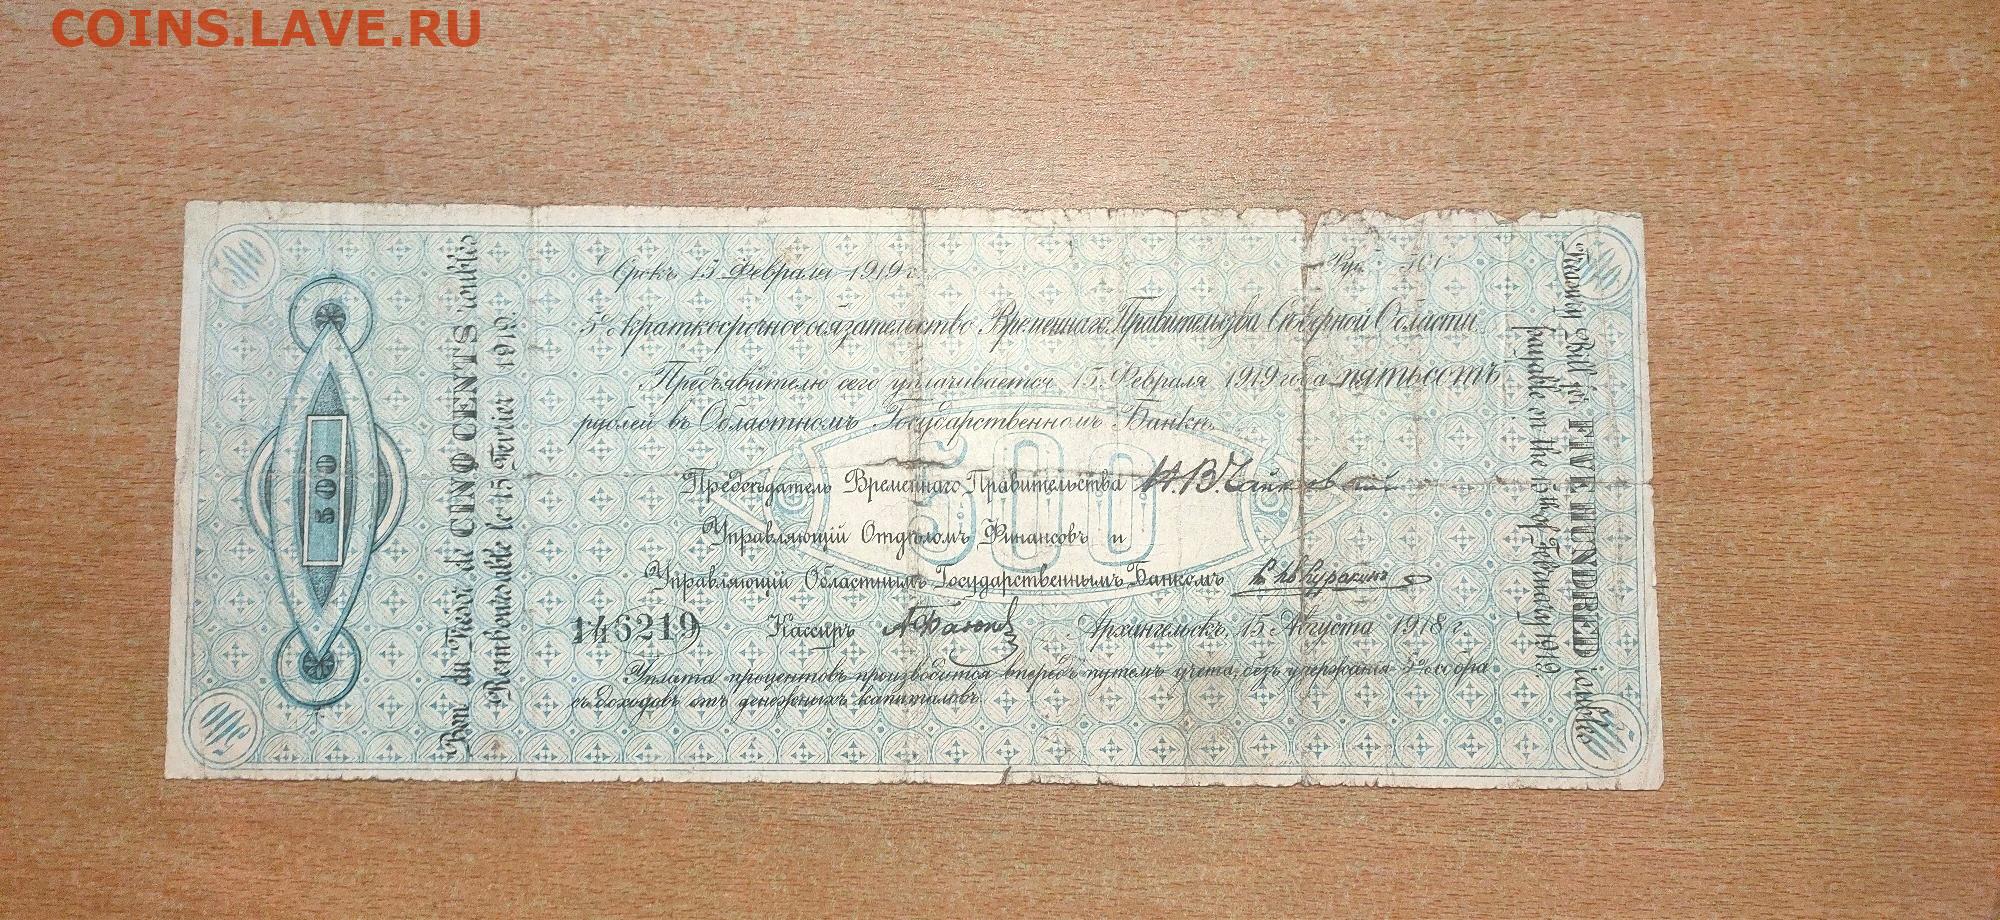 COINS.LAVE.RU
500
500
Срокъ 15 Февраля 1919 г.
Руб. 500
5% краткосрочное обязательство Временнаго Правительства Сѣверной Области
Предъявителю сего уплачивается 15 Февраля 1919 года пятьсотъ
рублей въ Областномъ Государственномъ Банкѣ.
500
Предсѣдатель Временнаго Правительства Н.В.Чайковскій
Управляющій Отдѣломъ Финансовъ и
Управляющій Областнымъ Государственнымъ Банкомъ Кн. Ив Куракинъ
146219 Кассиръ
Архангельскъ, 15 Августа 1918 г.
Уплата процентовъ производится впередъ путемъ учета, безъ удержанія 5% сбора
съ доходовъ отъ денежныхъ капиталовъ.
Bon du Trésor de CINQ CENTS roubles
Remboursable le 15 Fevrier 1919.
500
Treasury Bill for FIVE HUNDRED roubles
payable on the 15th of February 1919.
500
500